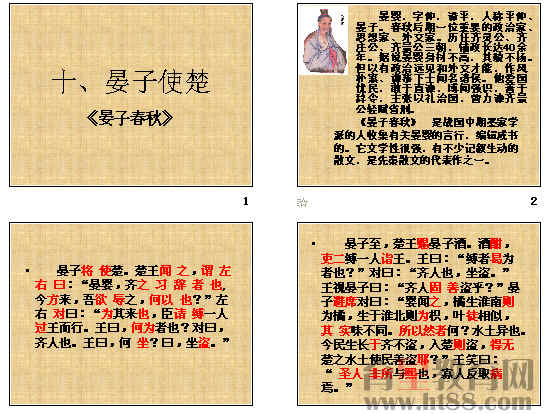 十、晏子使楚
《晏子春秋》
1
晏婴，字仲，谥平，人称平仲、
晏子。春秋后期一位重要的政治家、
思想家、外交家。历任齐灵公、齐
庄公、齐景公三朝，辅政长达40余
年。据说晏婴身材不高，其貌不扬。
但以有政治远见和外交才能，作风
朴素，谦恭下士闻名诸侯。他爱国
忧民，敢于直谏，博闻强识，善于
辞令，主张以礼治国，曾力谏齐景
公轻赋省刑。
《晏子春秋》 是战国中期墨家学
派的人收集有关晏婴的言行，编辑成书
的。它文学性很强，有不少记叙生动的
散文，是先秦散文的代表作之一。
2
• 晏子将 使楚。楚王闻 之，谓 左
右 曰：“晏婴，齐之 习 辞 者 也，
今方来，吾欲 辱之，何以 也？”左
右 对曰：“为其来也，臣请 缚一人
过王而行。王曰，何为者也？对曰，
齐人也。王曰，何 坐？曰，坐盗。”
• 晏子至，楚王赐晏子酒。酒酣，
吏二缚一人诣王。王曰：“缚者曷为
者也？”对曰：“齐人也，坐盗。”
王视晏子曰：“齐人固 善盗乎？”晏
子避席对曰：“婴闻之，橘生淮南则
为橘，生于淮北则为枳，叶徒相似，
其 实味不同。所以然者何？水土异也。
今民生长于齐不盗，入楚则盗，得无
楚之水土使民善盗耶？”王笑曰：
“ 圣人 非所与熙也，寡人反取病
焉。”
教育网
www.ht88.com